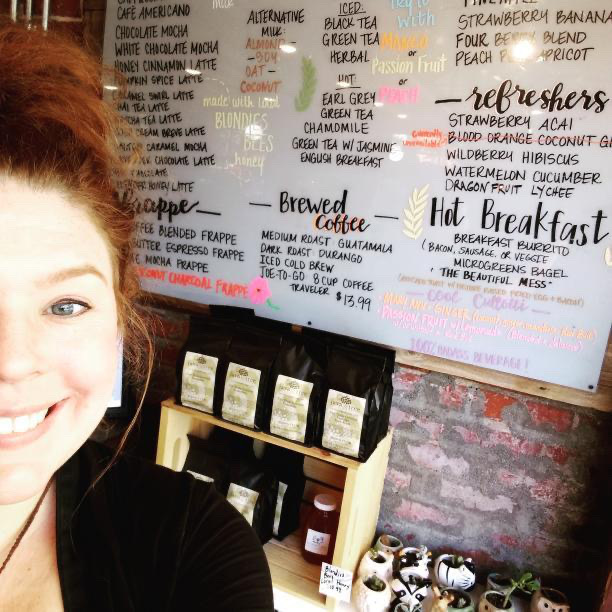 CAFÉ AMERICANO
CHOCOLATE MOCHA
WHITE CHOCOLATE MOCHA
HONEY CINNAMON LATTE
PUMPKIN SPICE LATTE
CARAMEL SWIRL LATTE
CHAI TEA LATTE
TCHA TEA LATTE
CREAM BREVE LATTE
CARAMEL MOCHA
CHOCOLATE LATTE
HONEY LATTE
Frappe
COFFEE BLENDED FRAPPE
BUTTER ESPRESSO FRAPPE
MOCHA FRAPPE
COCONUT CHARCOAL FRAPPE
ALTERNATIVE
MILK:
ALMOND
SOY
OAT -
COCONUT
made with local
BLONDIES
BEES
honey
ICED:
BLACK TEA
GREEN TEA
HERBAL
HOT:
EARL GREY
GREEN TEA
CHAMOMILE
GREEN TEA W/ JASMINE
ENGLISH BREAKFAST
Try it
with
MANGO
or
Passion Fruit
or
PEACH
STRAWBERRY BANANA
FOUR BERRY BLEND
PEACH APRICOT
refreshers
STRAWBERRY ACAI
currently unavailable
BLOOD ORANGE COCONUT
WILDBERRY HIBISCUS
WATERMELON CUCUMBER
DRAGON FRUIT LYCHEE
Brewed
Coffee
MEDIUM ROAST GUATAMALA
DARK ROAST DURANGO
ICED COLD BREW
JOE-TO-GO 8 CUP COFFEE
TRAVELER $13.99
Hot Breakfast
BREAKFAST BURRITO
(BACON, SAUSAGE, OR VEGGIE
MICROGREENS BAGEL
"THE BEAUTIFUL MESS"
GINGER
PASSION FRUIT w/ Lemonade
100% BADASS BEVERAGE!
Blondies
Bees
Local Honey